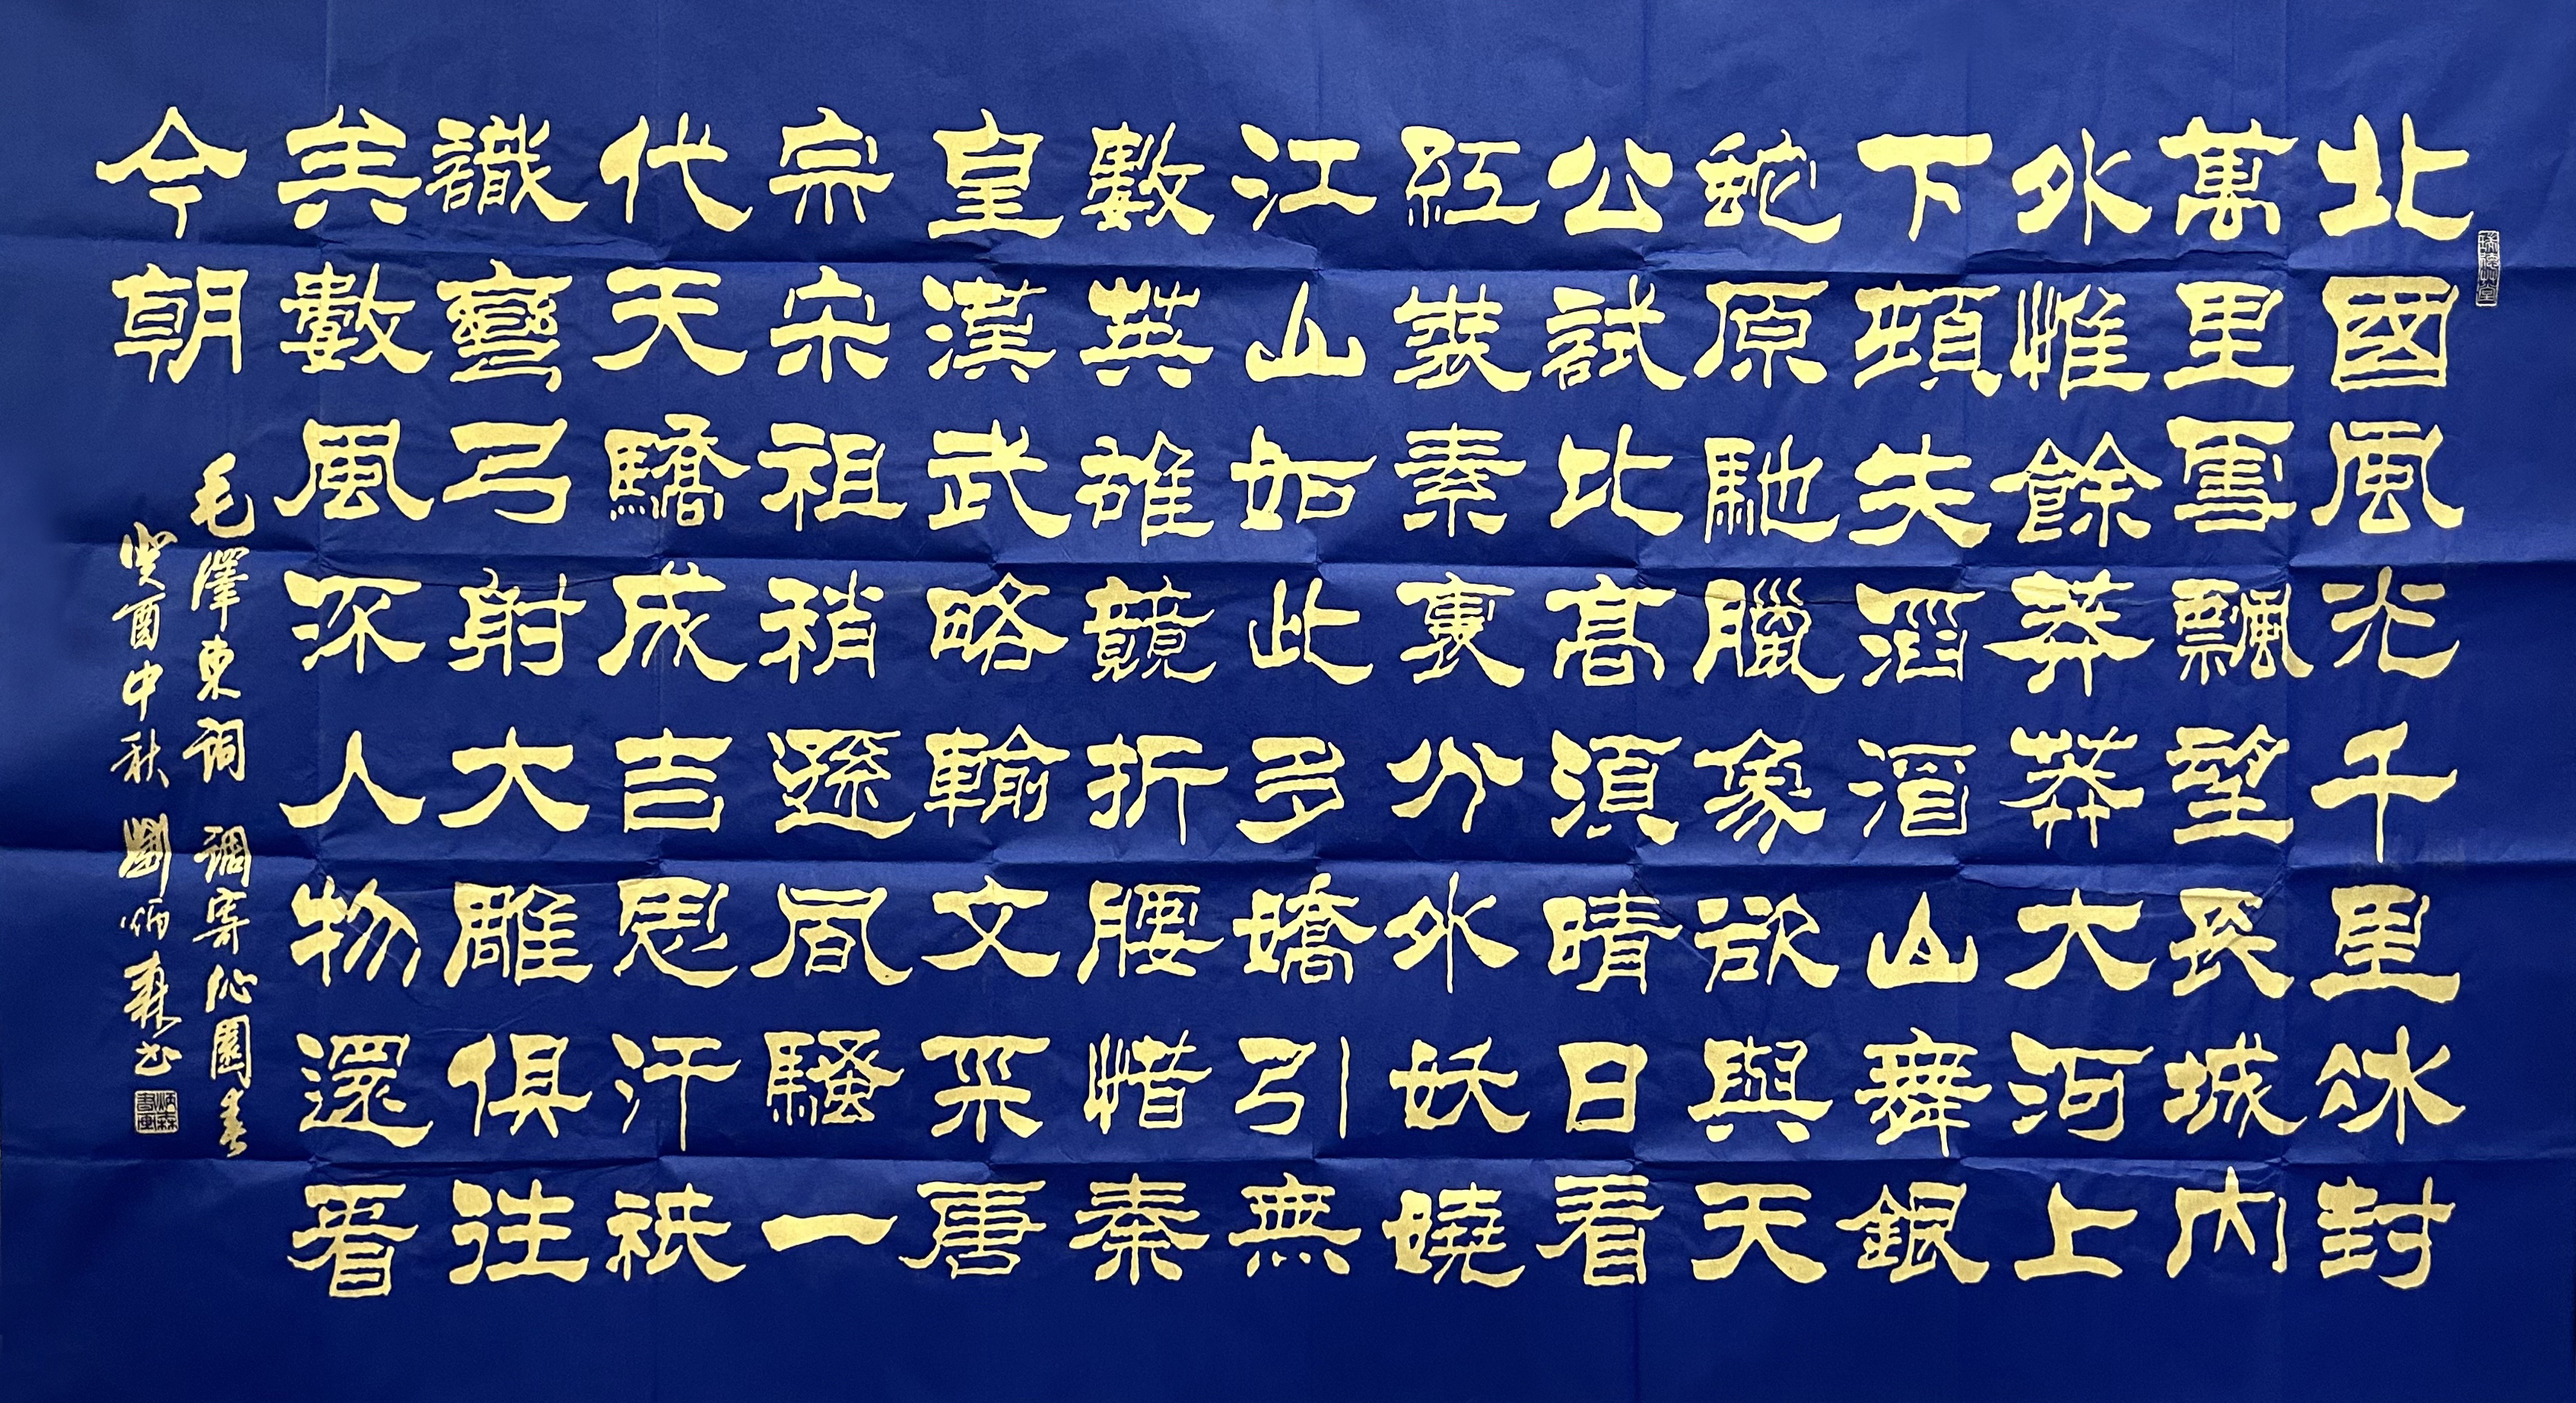 北國風光千里冰封
萬里雪飄望長城內
外惟餘莽莽大河上
下頓失滔滔山舞銀
蛇原馳臘象欲與天
公試比高須晴日看
紅裝素裹分外妖嬈
江山如此多嬌引無
數英雄競折腰惜秦
皇漢武略輸文采唐
宗宋祖稍遜風騷一
代天驕成吉思汗祇
識彎弓射大雕俱往
矣數風流人物還看
今朝
毛澤東詞 調寄沁園春
癸酉中秋 劉炳森书
炳森書畫